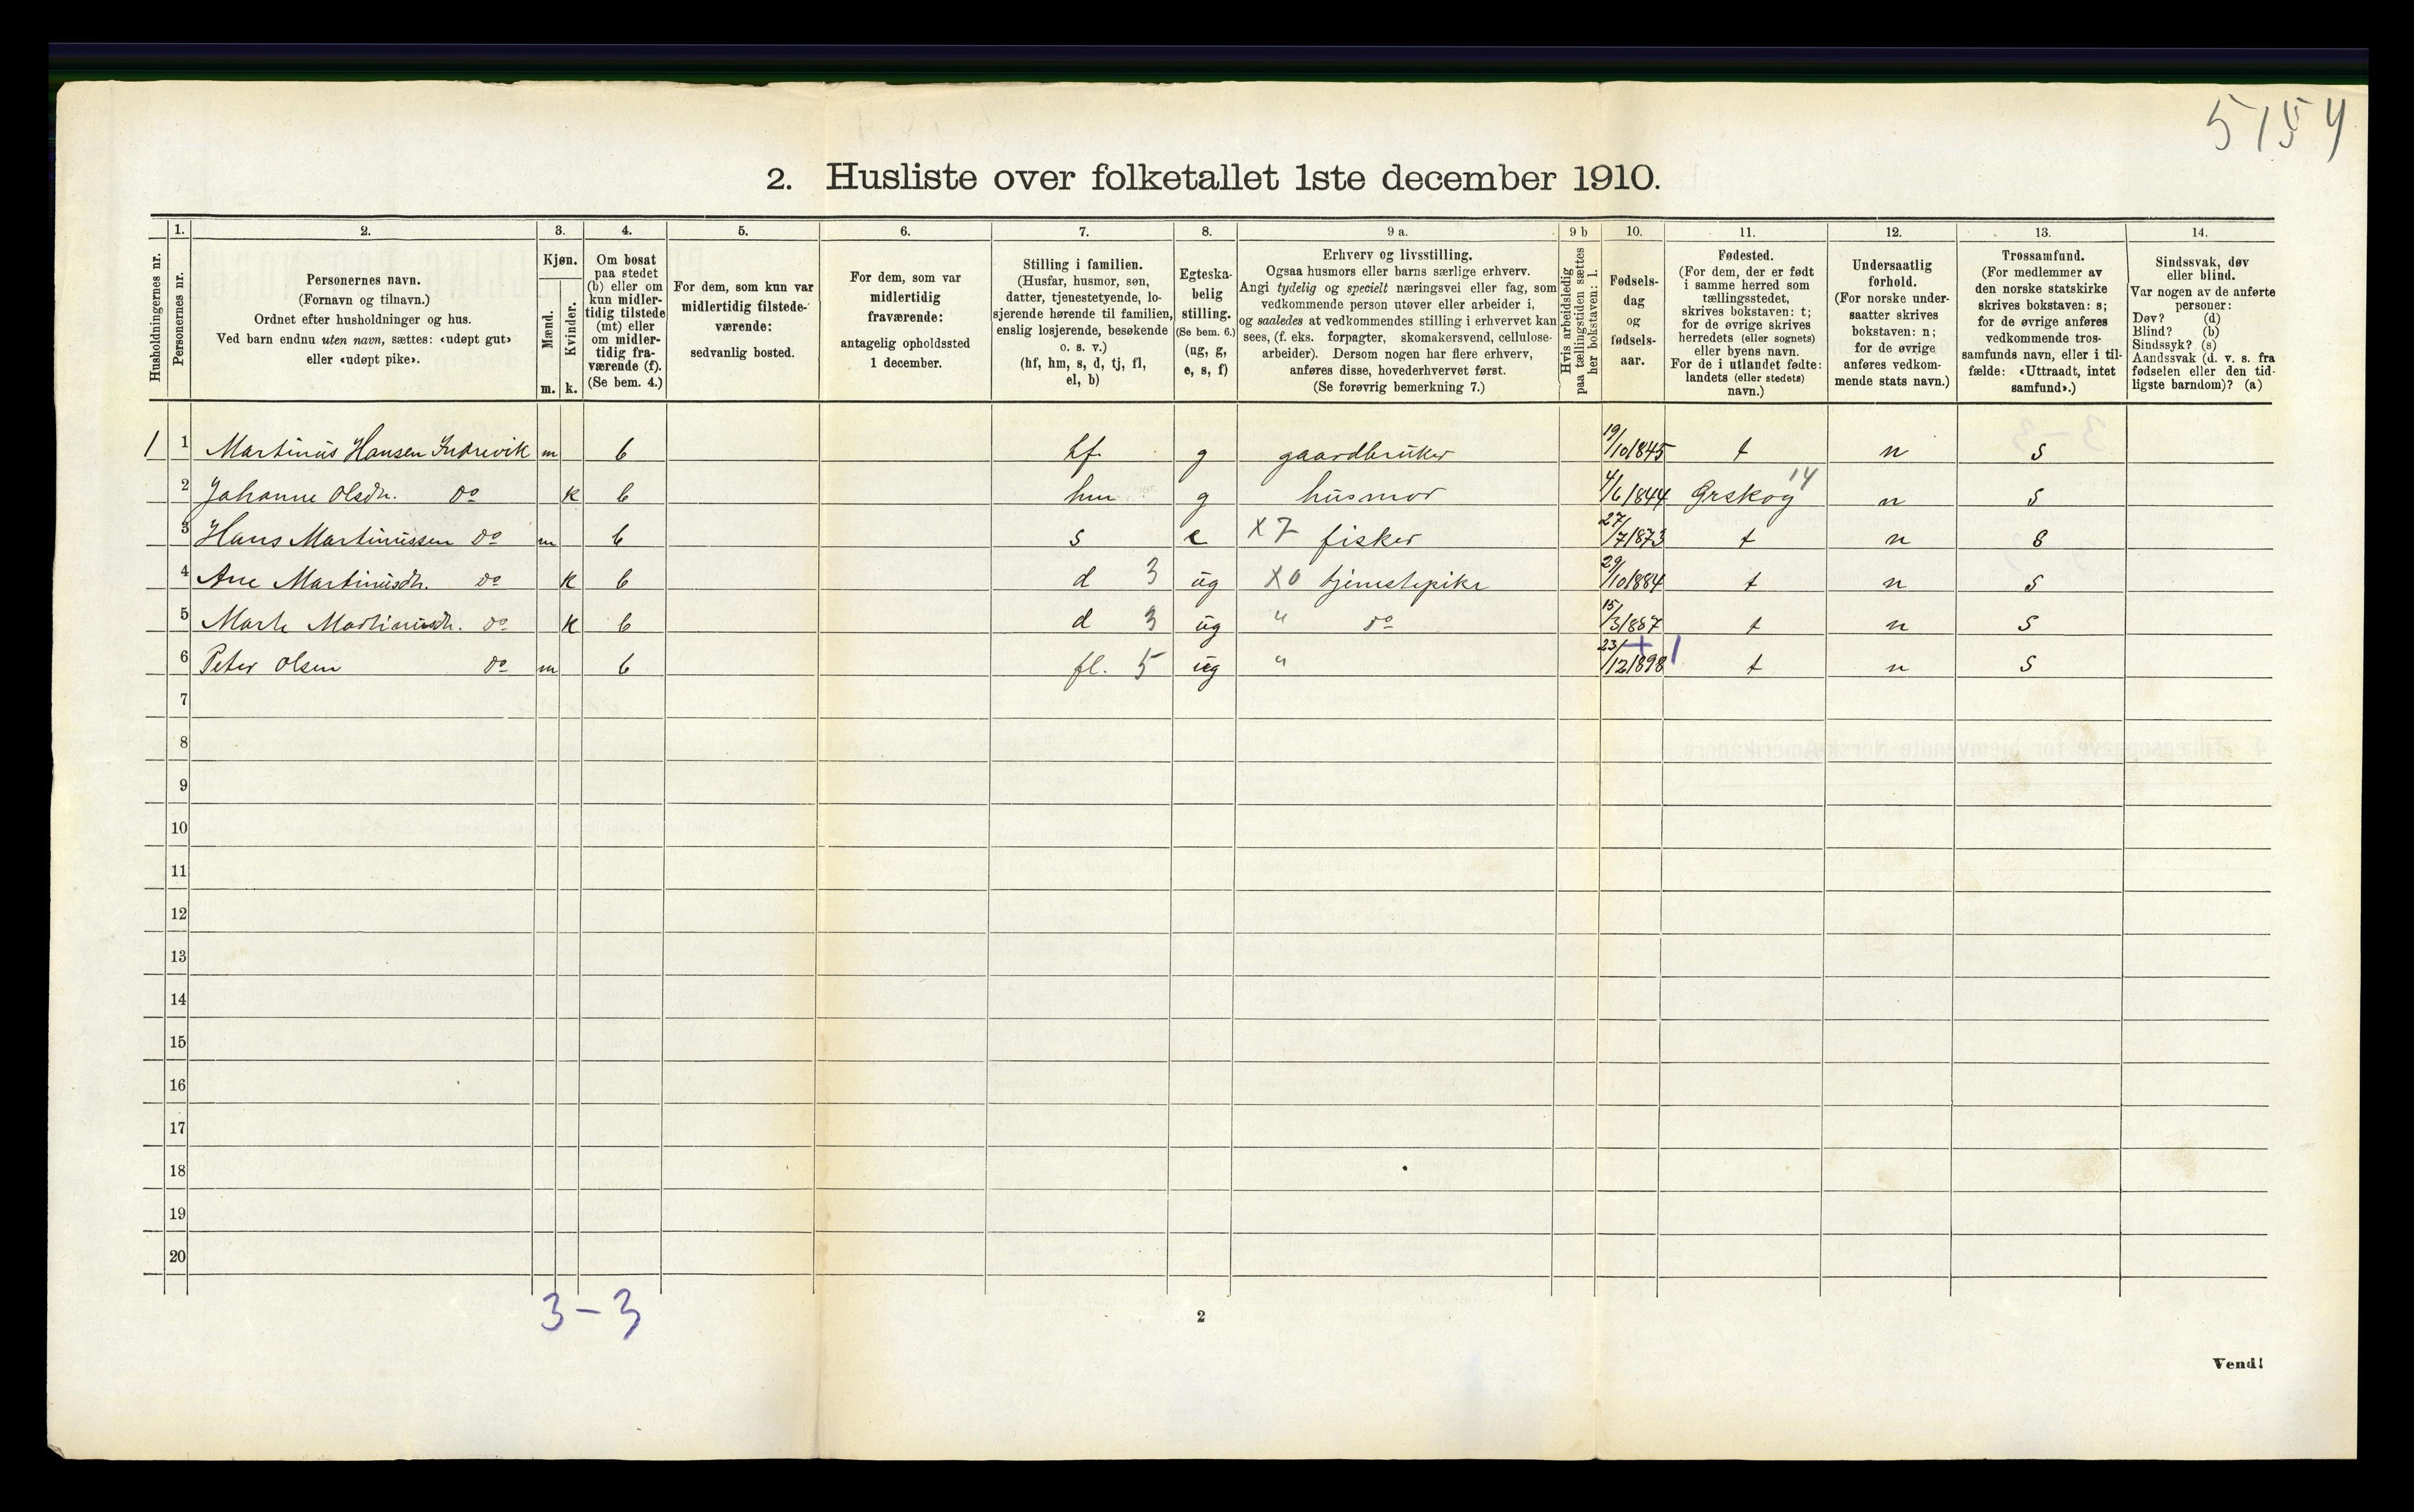 5154
2. Husliste over folketallet 1ste december 1910.
1. 2. 3. 4. 5. 6. 7. 8. 9 a. 9 b 10. 11. 12. 13. 14.
Husholdningernes nr.
Personernes nr.
Personernes navn.
(Fornavn og tilnavn.)
Ordnet efter husholdninger og hus.
Ved barn endnu uten navn, sættes: «udøpt gut»
eller «udøpt pike».
Kjøn.
Mænd.
Kvinder.
m. k.
Om bosat
paa stedet
(b) eller om
kun midler-
tidig tilstede
(mt) eller
om midler-
tidig fra-
værende (f).
(Se bem. 4.)
For dem, som kun var
midlertidig tilstede-
værende:
sedvanlig bosted.
For dem, som var
midlertidig
fraværende:
antagelig opholdssted
1 december.
Stilling i familien.
(Husfar, husmor, søn,
datter, tjenestetyende, lo-
sjerende hørende til familien,
enslig losjerende, besøkende
o. s. v.)
(hf, hm, s, d, tj, fl,
el, b)
Egteska-
belig
stilling.
(Se bem. 6.)
(ug, g,
e, s, f)
Erhverv og livsstilling.
Ogsaa husmors eller barns særlige erhverv.
Angi tydelig og specielt næringsvei eller fag, som
vedkommende person utøver eller arbeider i,
og saaledes at vedkommendes stilling i erhvervet kan
sees, (f. eks. forpagter, skomakersvend, cellulose-
arbeider). Dersom nogen har flere erhverv,
anføres disse, hovederhvervet først.
(Se forøvrig bemerkning 7.)
Hvis arbeidsledig
paa tællingstiden sættes
her bokstaven: l.
Fødsels-
dag
og
fødsels-
aar.
Fødested.
(For dem, der er født
i samme herred som
tællingsstedet,
skrives bokstaven: t;
for de øvrige skrives
herredets (eller sognets)
eller byens navn.
For de i utlandet fødte:
landets (eller stedets)
navn.)
Undersaatlig
forhold.
(For norske under-
saatter skrives
bokstaven: n;
for de øvrige
anføres vedkom-
mende stats navn.)
Trossamfund.
(For medlemmer av
den norske statskirke
skrives bokstaven: s;
for de øvrige anføres
vedkommende tros-
samfunds navn, eller i til-
fælde: «Uttraadt, intet
samfund».)
Sindssvak, døv
eller blind.
Var nogen av de anførte
personer:
Døv? (d)
Blind? (b)
Sindssyk? (s)
Aandssvak (d. v. s. fra
fødselen eller den tid-
ligste barndom)? (a)
1 1 Martinus Hansen Indrevik m b hf. g gaardbruker 19/10 1845 t n s
2 Johanne Olsdtr. do k b hm g husmor 4/6 1844 Ørskog 14 n s
3 Hans Martinussen do m b s e x 7 fisker 27/7 1873 t n s
4 Ane Martinusdtr. do k b d 3 ug x 0 tjenestepike 29/10 1884 t n s
5 Marte Martinusdtr. do k b d 3 ug " do 15/3 1887 t n s
6 Peter Olsen do m b fl. 5 ug " 23/12 1898 + 1 t n s
7
8
9
10
11
12
13
14
15
16
17
18
19
20
3 - 3
2
Vend!